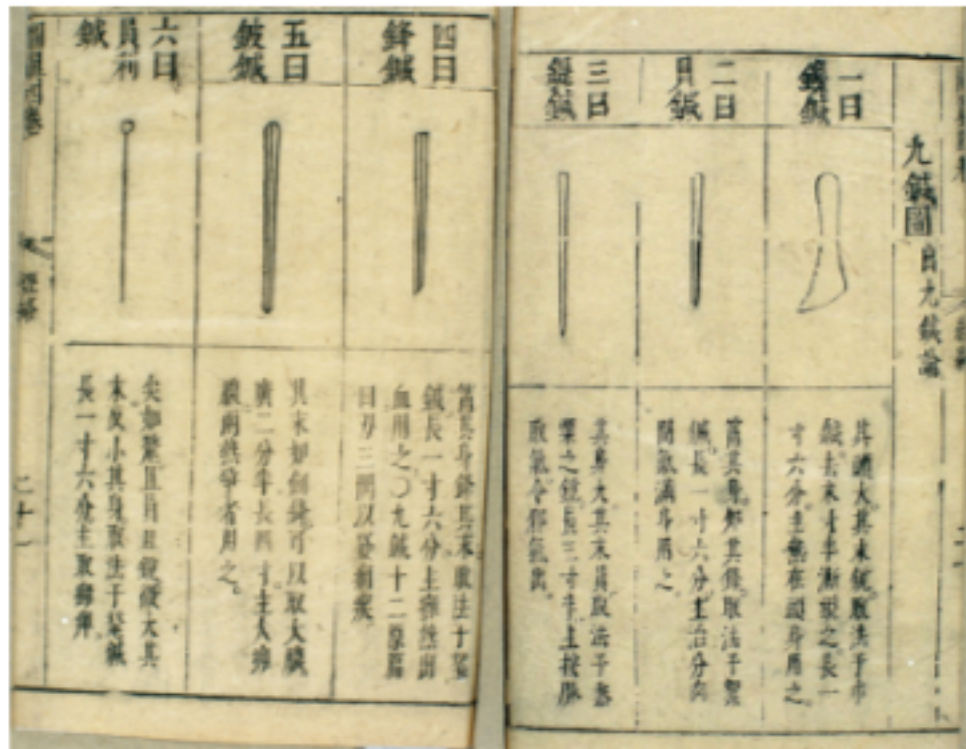 九鍼圖 自九鍼論
一曰
鑱鍼
其頭大其末銳取法于巾
鍼去末寸半漸銳之長一
寸六分主熱在頭身用之
二曰
員鍼
筩其身卵其鋒取法于絮
鍼長一寸六分主治分肉
間氣滿身用之
三曰
鍉鍼
其身大其末員取法于黍
粟之銳長三寸半主按脉
取氣令邪氣出
四曰
鋒鍼
筩其身鋒其末取法于絮
鍼長一寸六分主癰熱出
血用之○九鍼十二原篇
曰刃三隅以發痼疾
五曰
鈹鍼
其末如劍鋒可以取大膿
廣二分半長四寸主大癰
膿兩熱爭者用之
六曰
員利
鍼
尖如氂且員且銳微大其
末反小其身取法于氂鍼
長一寸六分主取癰痺